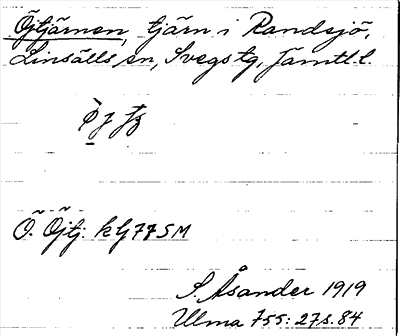 Öjtjärnen, tjärn i Randsjö,
Linsälls sn, Svegs tg, Jämtl. l.
Ö. Öjtj. kG 77 SM
S. Åsander 1919
Ulma 755: 27 s. 84